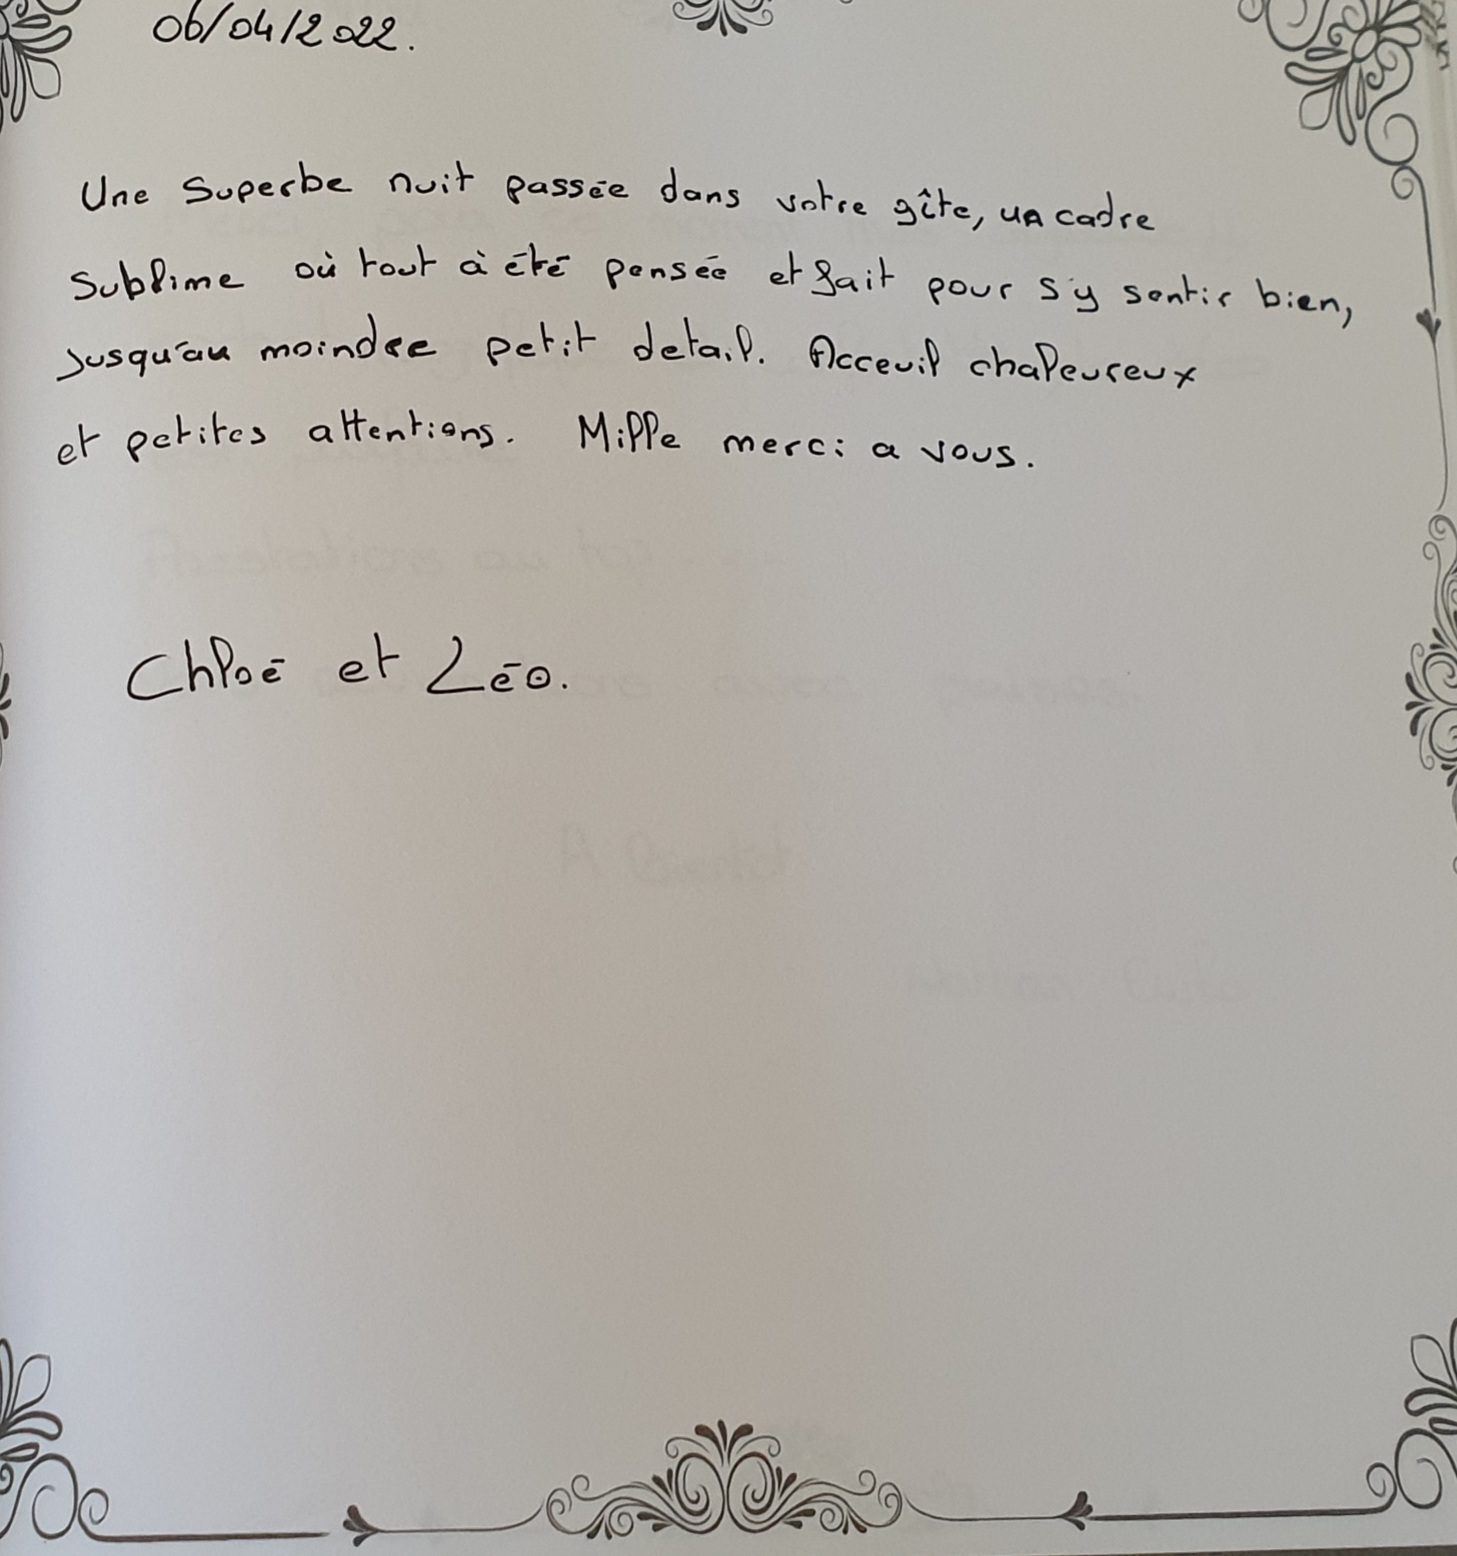 06/04/2022.
Une Superbe nuit passée dans votre gîte, un cadre
Sublime où tout à été pensée et fait pour s'y sentir bien,
Jusqu'au moindre petit detail. Acceuil chaleureux
et petites attentions. Mille merci a vous.
Chloé et Léo.